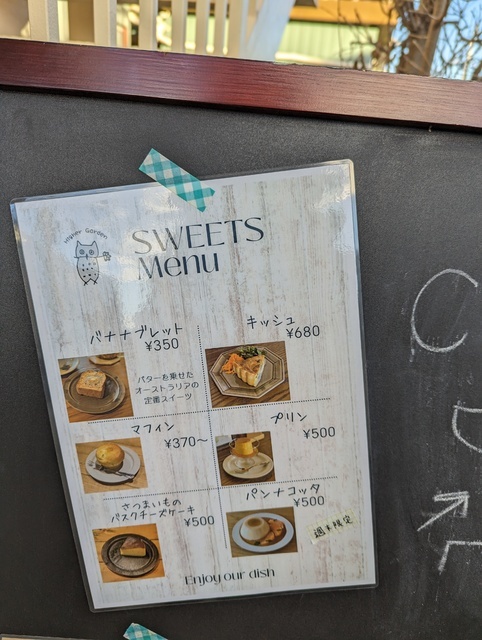 Higher Garden
SWEETS
Menu
バナナブレット
¥350
バターを乗せた
オーストラリアの
定番スイーツ
キッシュ
¥680
マフィン
¥370～
プリン
¥500
さつまいもの
バスクチーズケーキ
¥500
パンナコッタ
¥500
週末限定
Enjoy our dish